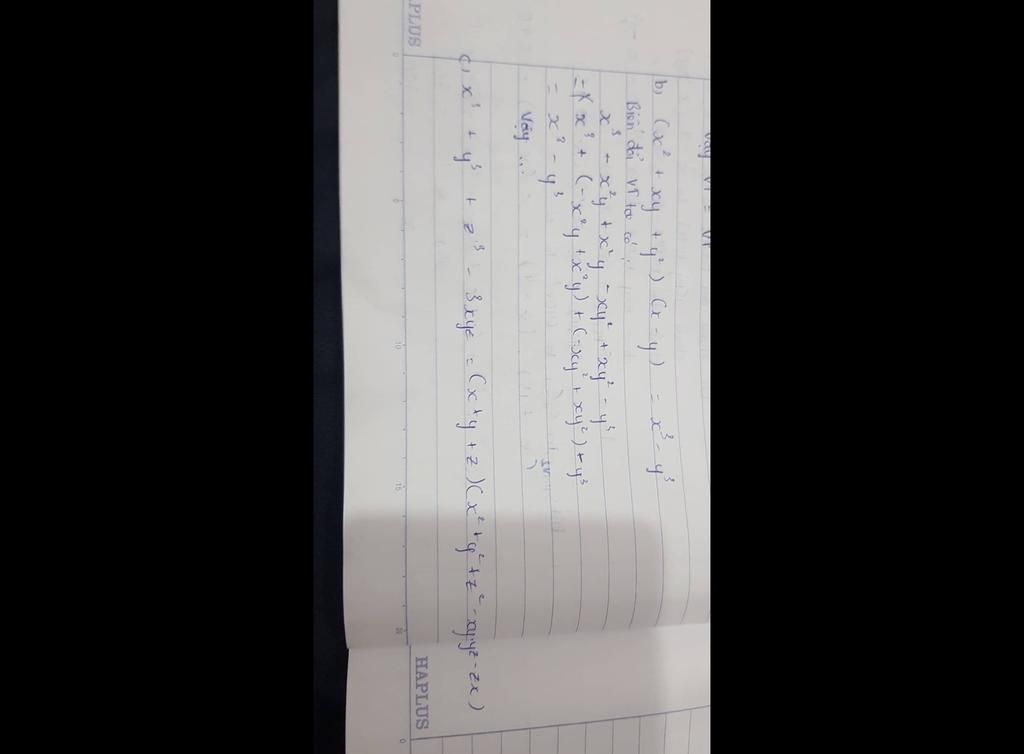 Vậy VT = VP
b) (x² + xy + y²) (x - y) = x³ - y³
Biến đổi VT ta có:
x³ - x²y + x²y - xy² + xy² - y³
= x³ + (-x²y + x²y) + (-xy² + xy²) + y³
= x³ - y³
Vậy ...
c) x³ + y³ + z³ - 3xyz = (x + y + z)(x² + y² + z² - xy - yz - zx)
HAPLUS
HAPLUS
0 5 10 15 20
0